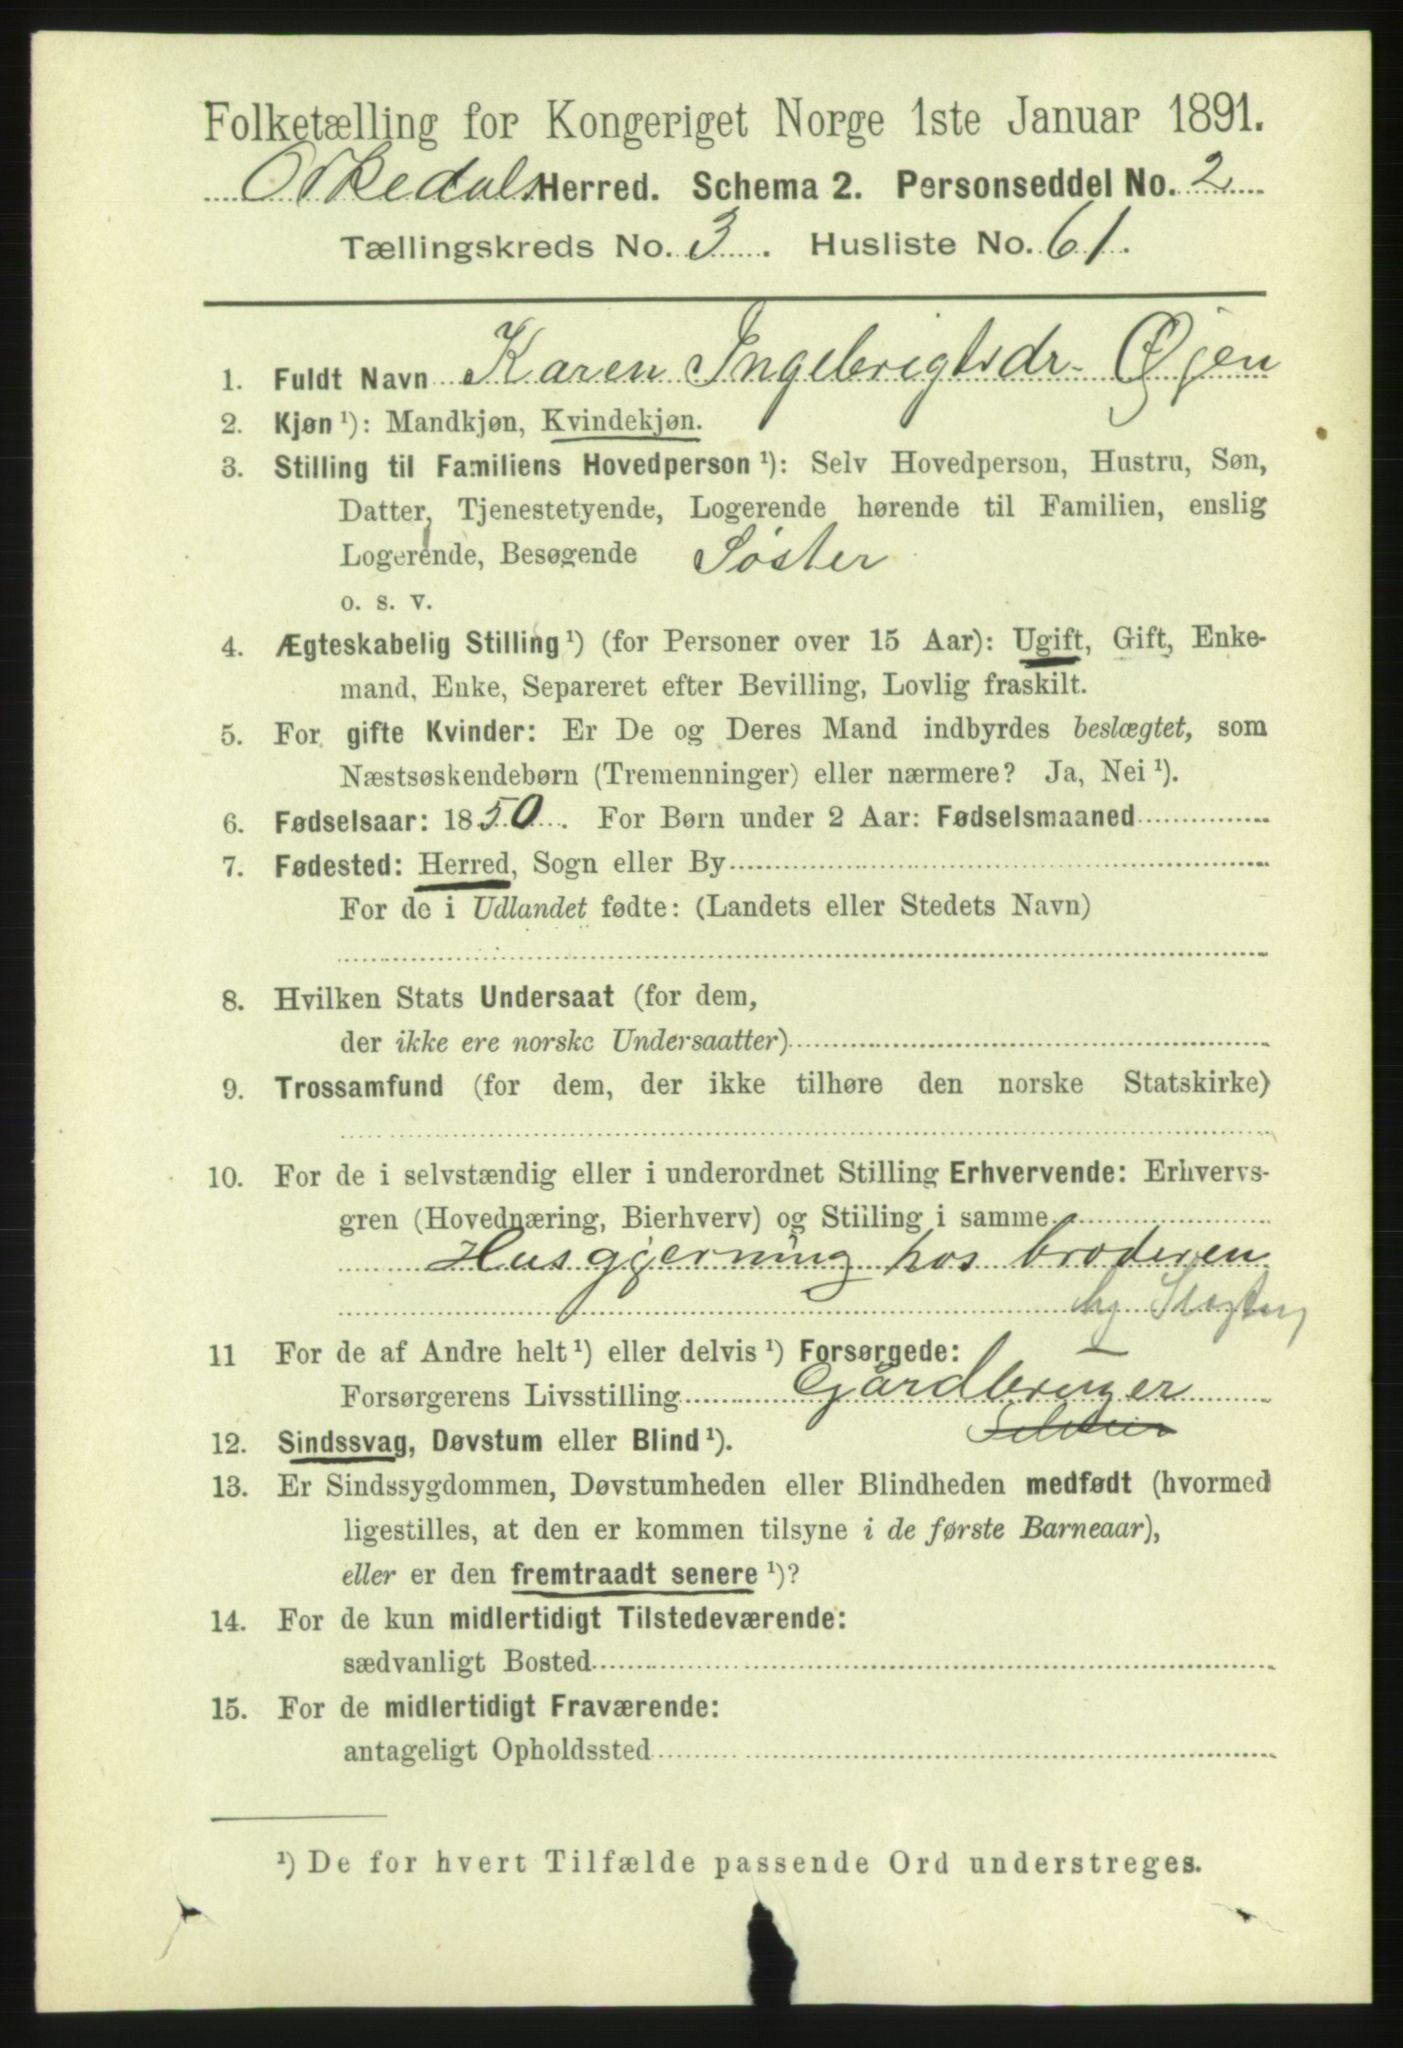 Folketælling for Kongeriget Norge 1ste Januar 1891.
Orkedals Herred. Schema 2. Personseddel No. 2
Tællingskreds No. 3. Husliste No. 61.
1. Fuldt Navn Karen Ingebrigtsdr. Øjen
2. Kjøn ¹): Mandkjøn, Kvindekjøn.
3. Stilling til Familiens Hovedperson ¹): Selv Hovedperson, Hustru, Søn,
Datter, Tjenestetyende, Logerende hørende til Familien, enslig
Logerende, Besøgende Søster
o. s. v.
4. Ægteskabelig Stilling ¹) (for Personer over 15 Aar): Ugift, Gift, Enke-
mand, Enke, Separeret efter Bevilling, Lovlig fraskilt.
5. For gifte Kvinder: Er De og Deres Mand indbyrdes beslægtet, som
Næstsøskendebørn (Tremenninger) eller nærmere? Ja, Nei ¹).
6. Fødselsaar: 1850. For Børn under 2 Aar: Fødselsmaaned
7. Fødested: Herred, Sogn eller By
For de i Udlandet fødte: (Landets eller Stedets Navn)
8. Hvilken Stats Undersaat (for dem,
der ikke ere norske Undersaatter)
9. Trossamfund (for dem, der ikke tilhøre den norske Statskirke)
10. For de i selvstændig eller i underordnet Stilling Erhvervende: Erhvervs-
gren (Hovednæring, Bierhverv) og Stilling i samme
Husgjerning hos broderen
11 For de af Andre helt ¹) eller delvis ¹) Forsørgede:
Forsørgerens Livsstilling Gårdbruger
12. Sindssvag, Døvstum eller Blind ¹).
13. Er Sindssygdommen, Døvstumheden eller Blindheden medfødt (hvormed
ligestilles, at den er kommen tilsyne i de første Barneaar),
eller er den fremtraadt senere ¹)?
14. For de kun midlertidigt Tilstedeværende:
sædvanligt Bosted
15. For de midlertidigt Fraværende:
antageligt Opholdssted
¹) De for hvert Tilfælde passende Ord understreges.